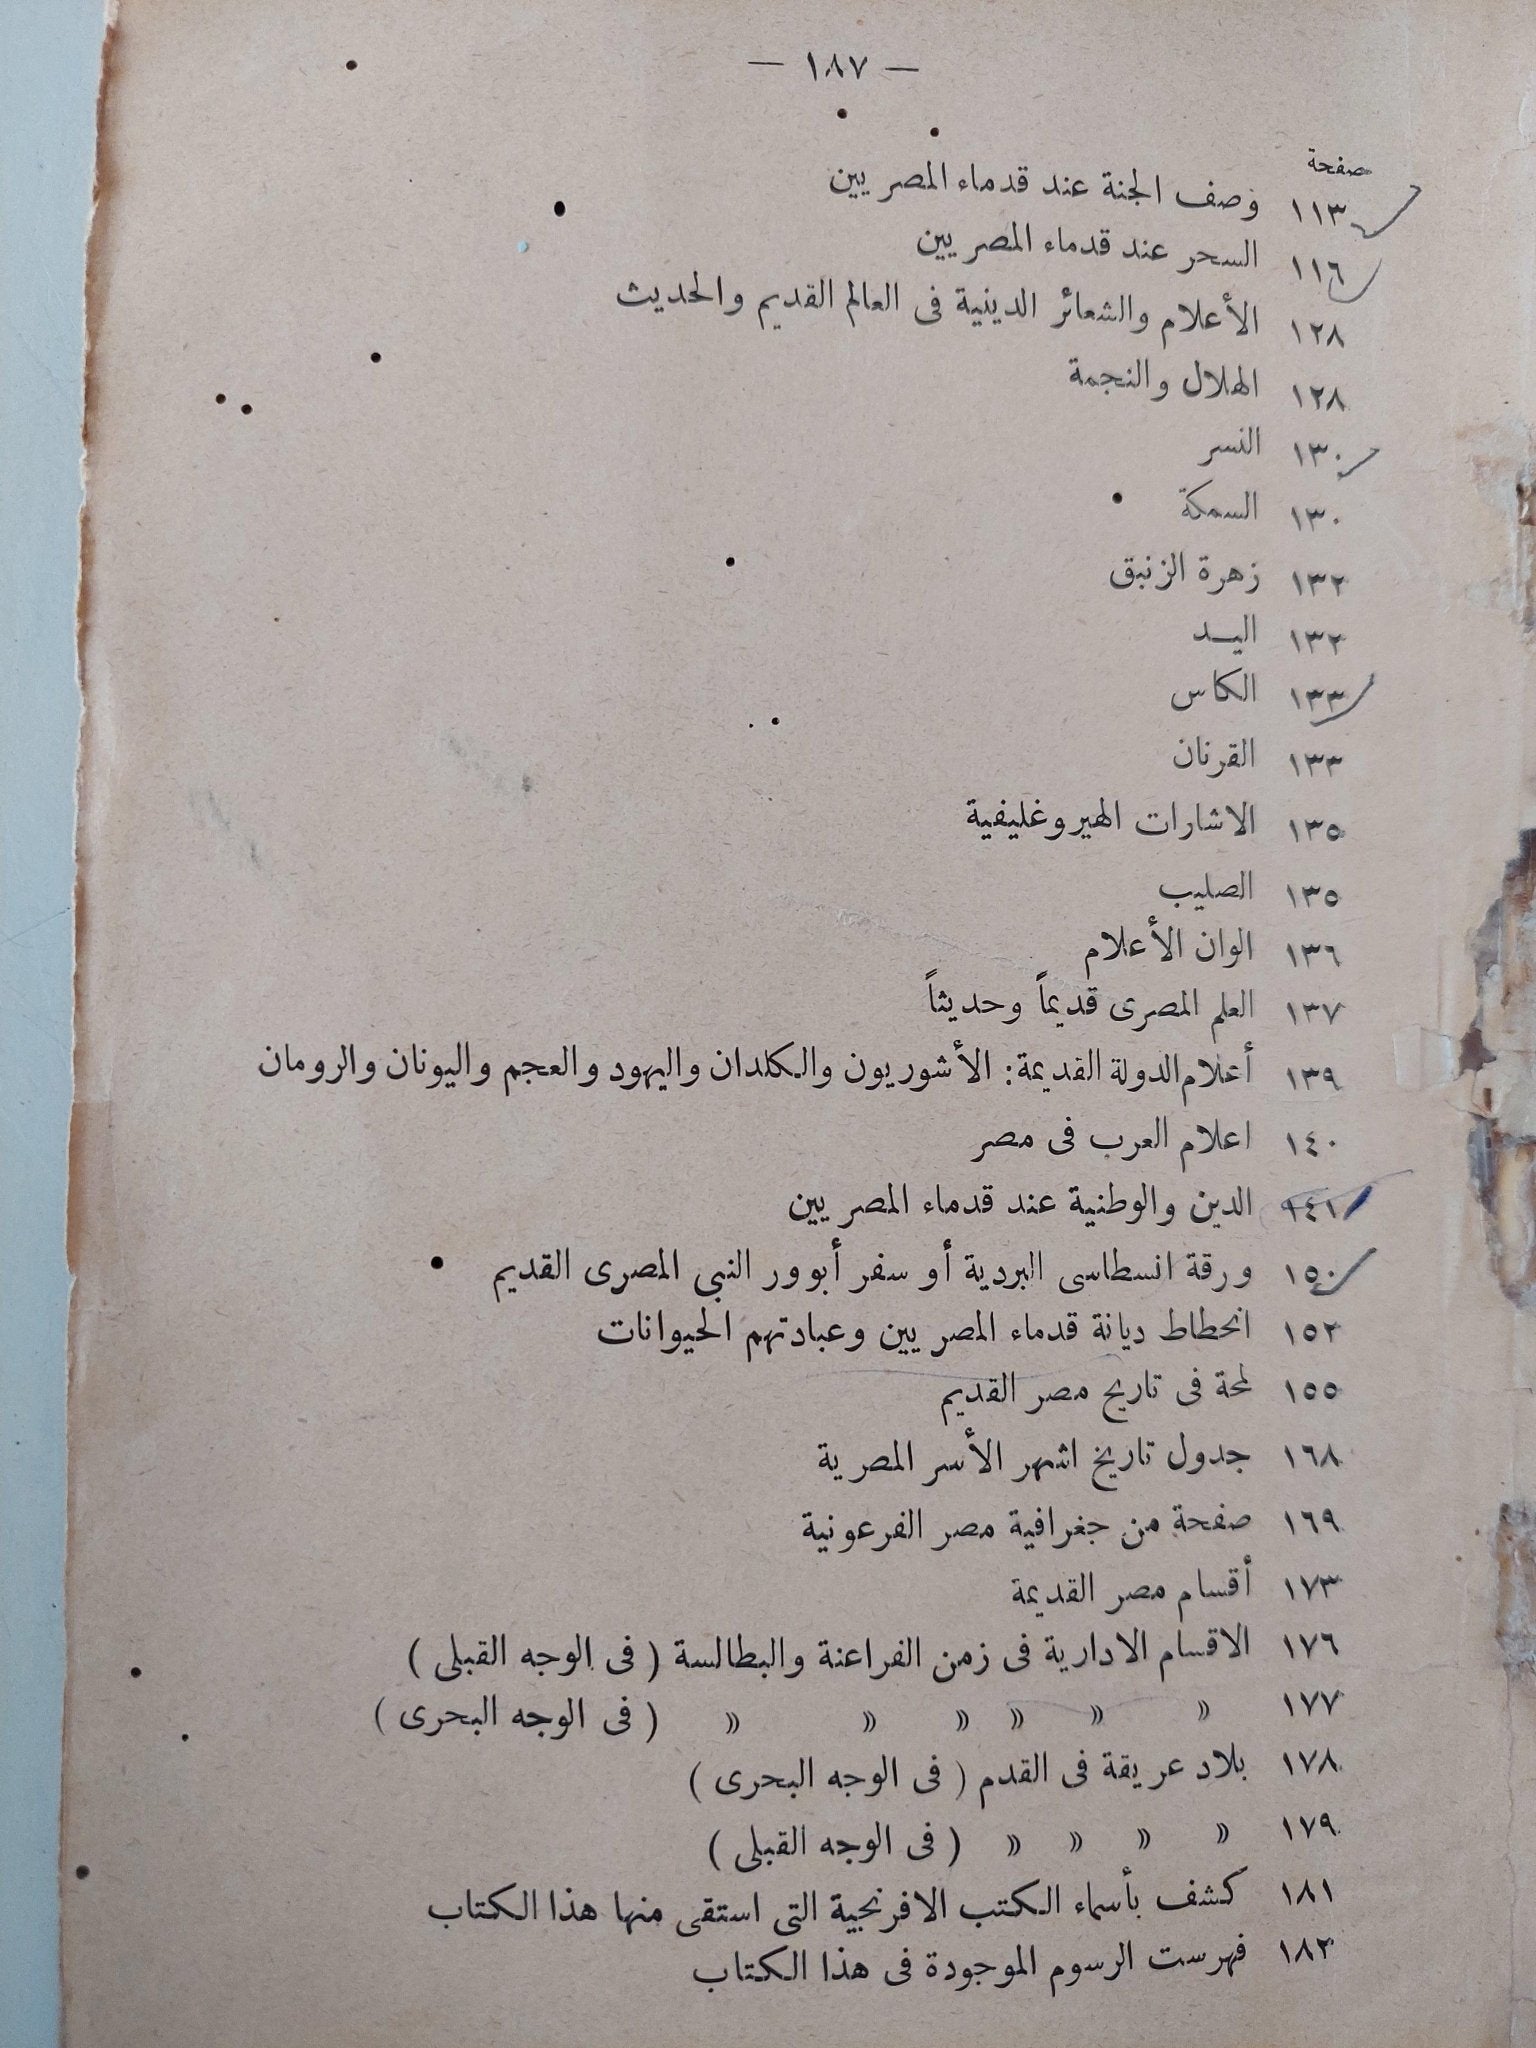 — ١٨٧ —
صفحة
١١٣ وصف الجنة عند قدماء المصريين
١١٦ السحر عند قدماء المصريين
١٢٨ الأعلام والشعائر الدينية فى العالم القديم والحديث
١٢٨ الهلال والنجمة
١٣٠ النسر
١٣٠ السمكة
١٣٢ زهرة الزنبق
١٣٢ اليـــد
١٣٣ الكاس
١٣٣ القرنان
١٣٥ الاشارات الهيروغليفية
١٣٥ الصليب
١٣٦ الوان الأعلام
١٣٧ العلم المصرى قديماً وحديثاً
١٣٩ أعلام الدولة القديمة: الأشوريون والكلدان واليهود والعجم واليونان والرومان
١٤٠ اعلام العرب فى مصر
١٤١ الدين والوطنية عند قدماء المصريين
١٥٠ ورقة انسطاسى البردية أو سفر أبوور النبي المصرى القديم
١٥٢ انحطاط ديانة قدماء المصريين وعبادتهم الحيوانات
١٥٥ لمحة فى تاريخ مصر القديم
١٦٨ جدول تاريخ اشهر الأسر المصرية
١٦٩ صفحة من جغرافية مصر الفرعونية
١٧٣ أقسام مصر القديمة
١٧٦ الاقسام الادارية فى زمن الفراعنة والبطالسة ( فى الوجه القبلى )
١٧٧ » » » » » » ( فى الوجه البحرى )
١٧٨ بلاد عريقة فى القدم ( فى الوجه البحرى )
١٧٩ » » » » ( فى الوجه القبلى )
١٨١ كشف بأسماء الكتب الافرنجية التى استقى منها هذا الكتاب
١٨٣ فهرست الرسوم الموجودة فى هذا الكتاب